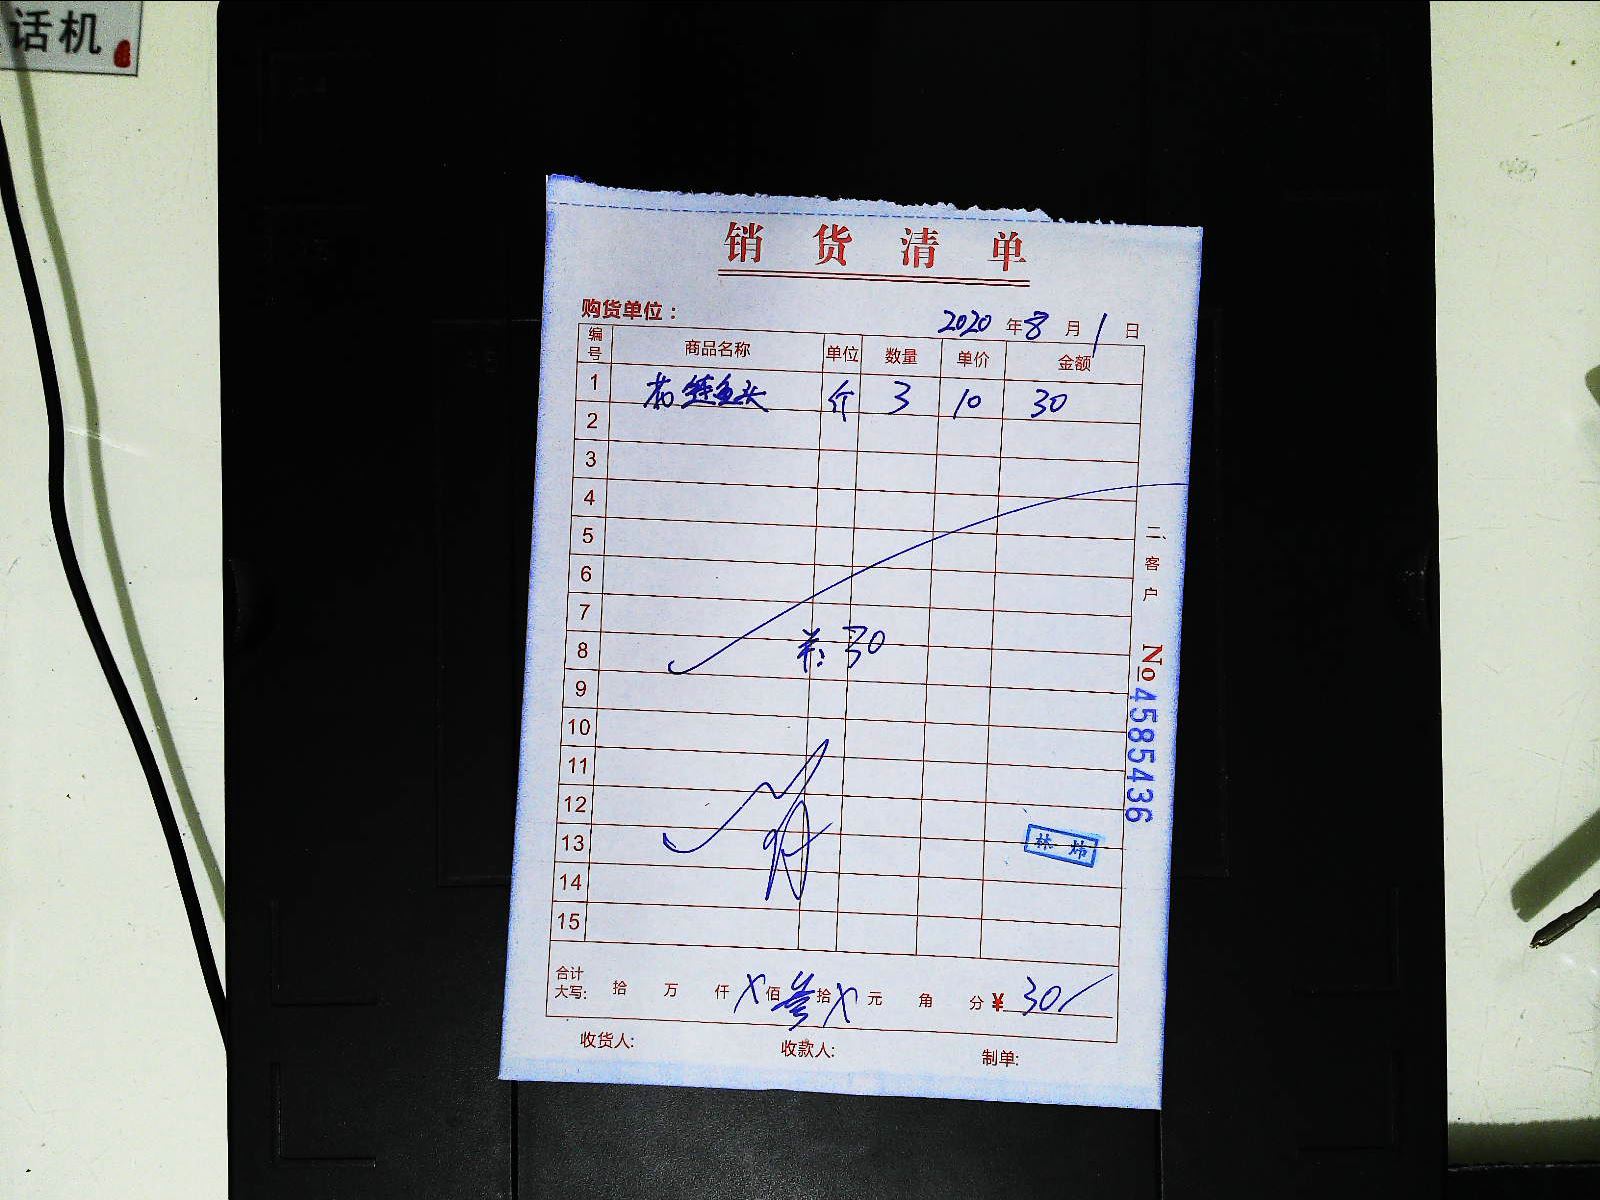 话机
销货清单
购货单位： 2020年8月1日
编号 商品名称 单位 数量 单价 金额
1 花鲢鱼头 个 3 10 30
2
3
4
5
6
7
8 共: 30
9
10
11
12
13 林炜
14
15
合计大写: 拾 万 仟 X 佰 叁 拾 X 元 角 分 ¥ 30/
收货人: 收款人: 制单:
二、客户 No 4585436